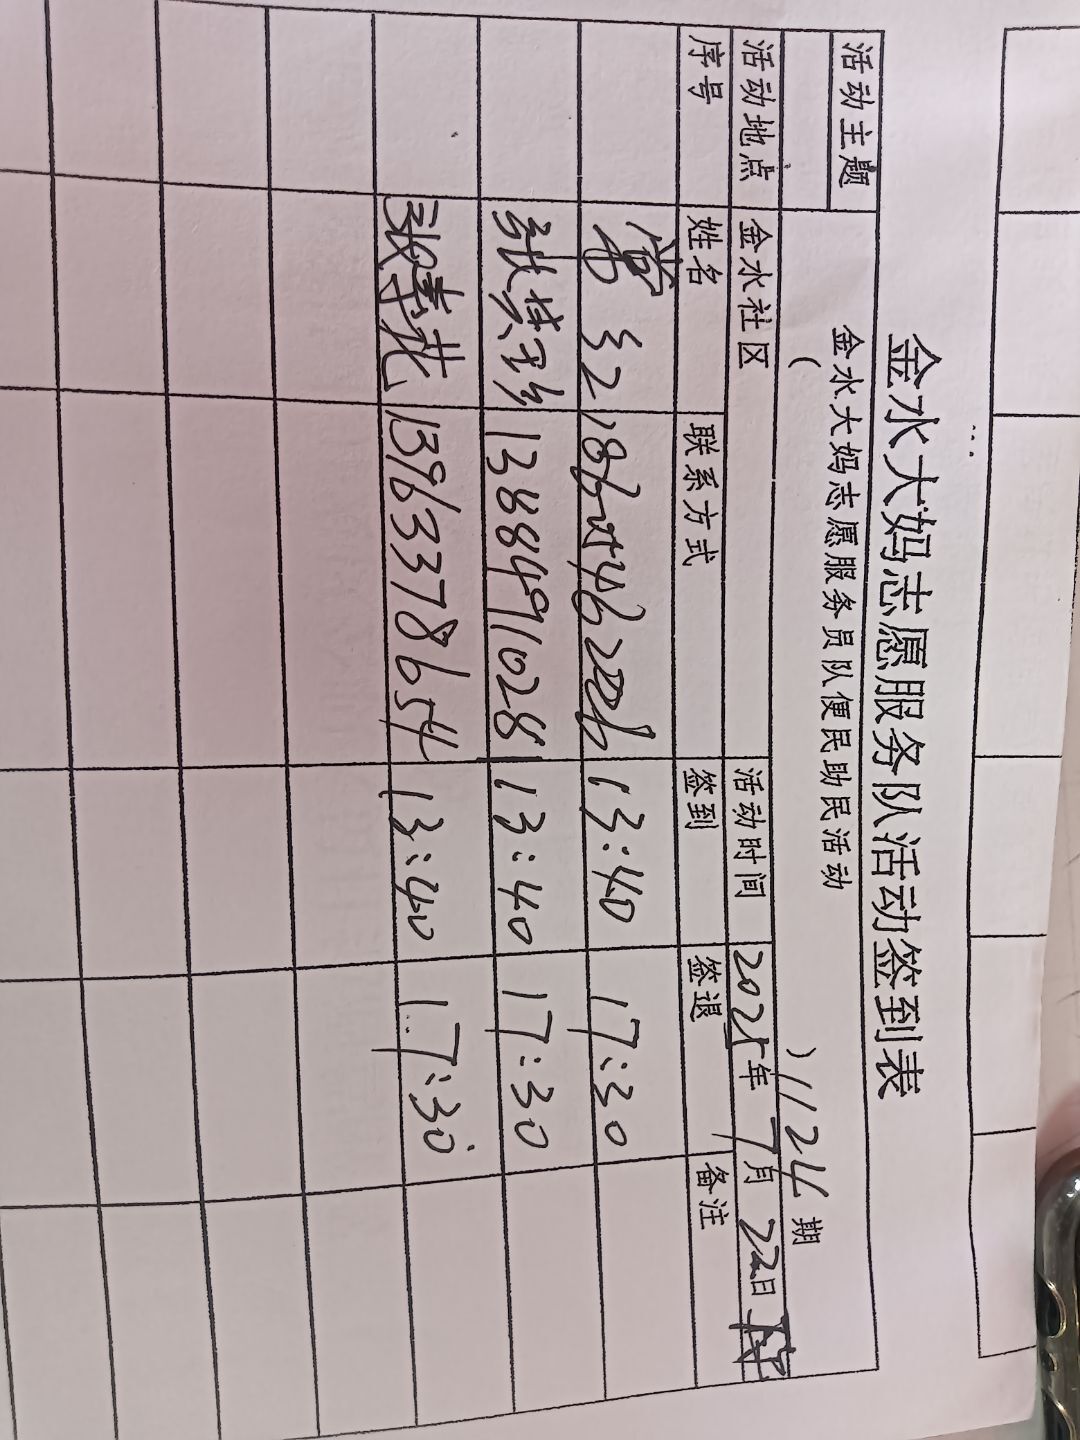 金水大妈志愿服务队活动签到表
活动主题 金水大妈志愿服务员队便民助民活动
( ) 1124期
活动地点 金水社区 活动时间 2025年 7月 22日
序号 姓名 联系方式 签到 签退 备注
常 13:40 17:30
张 1388491028 13:40 17:30
张 13963378654 13:40 17:30